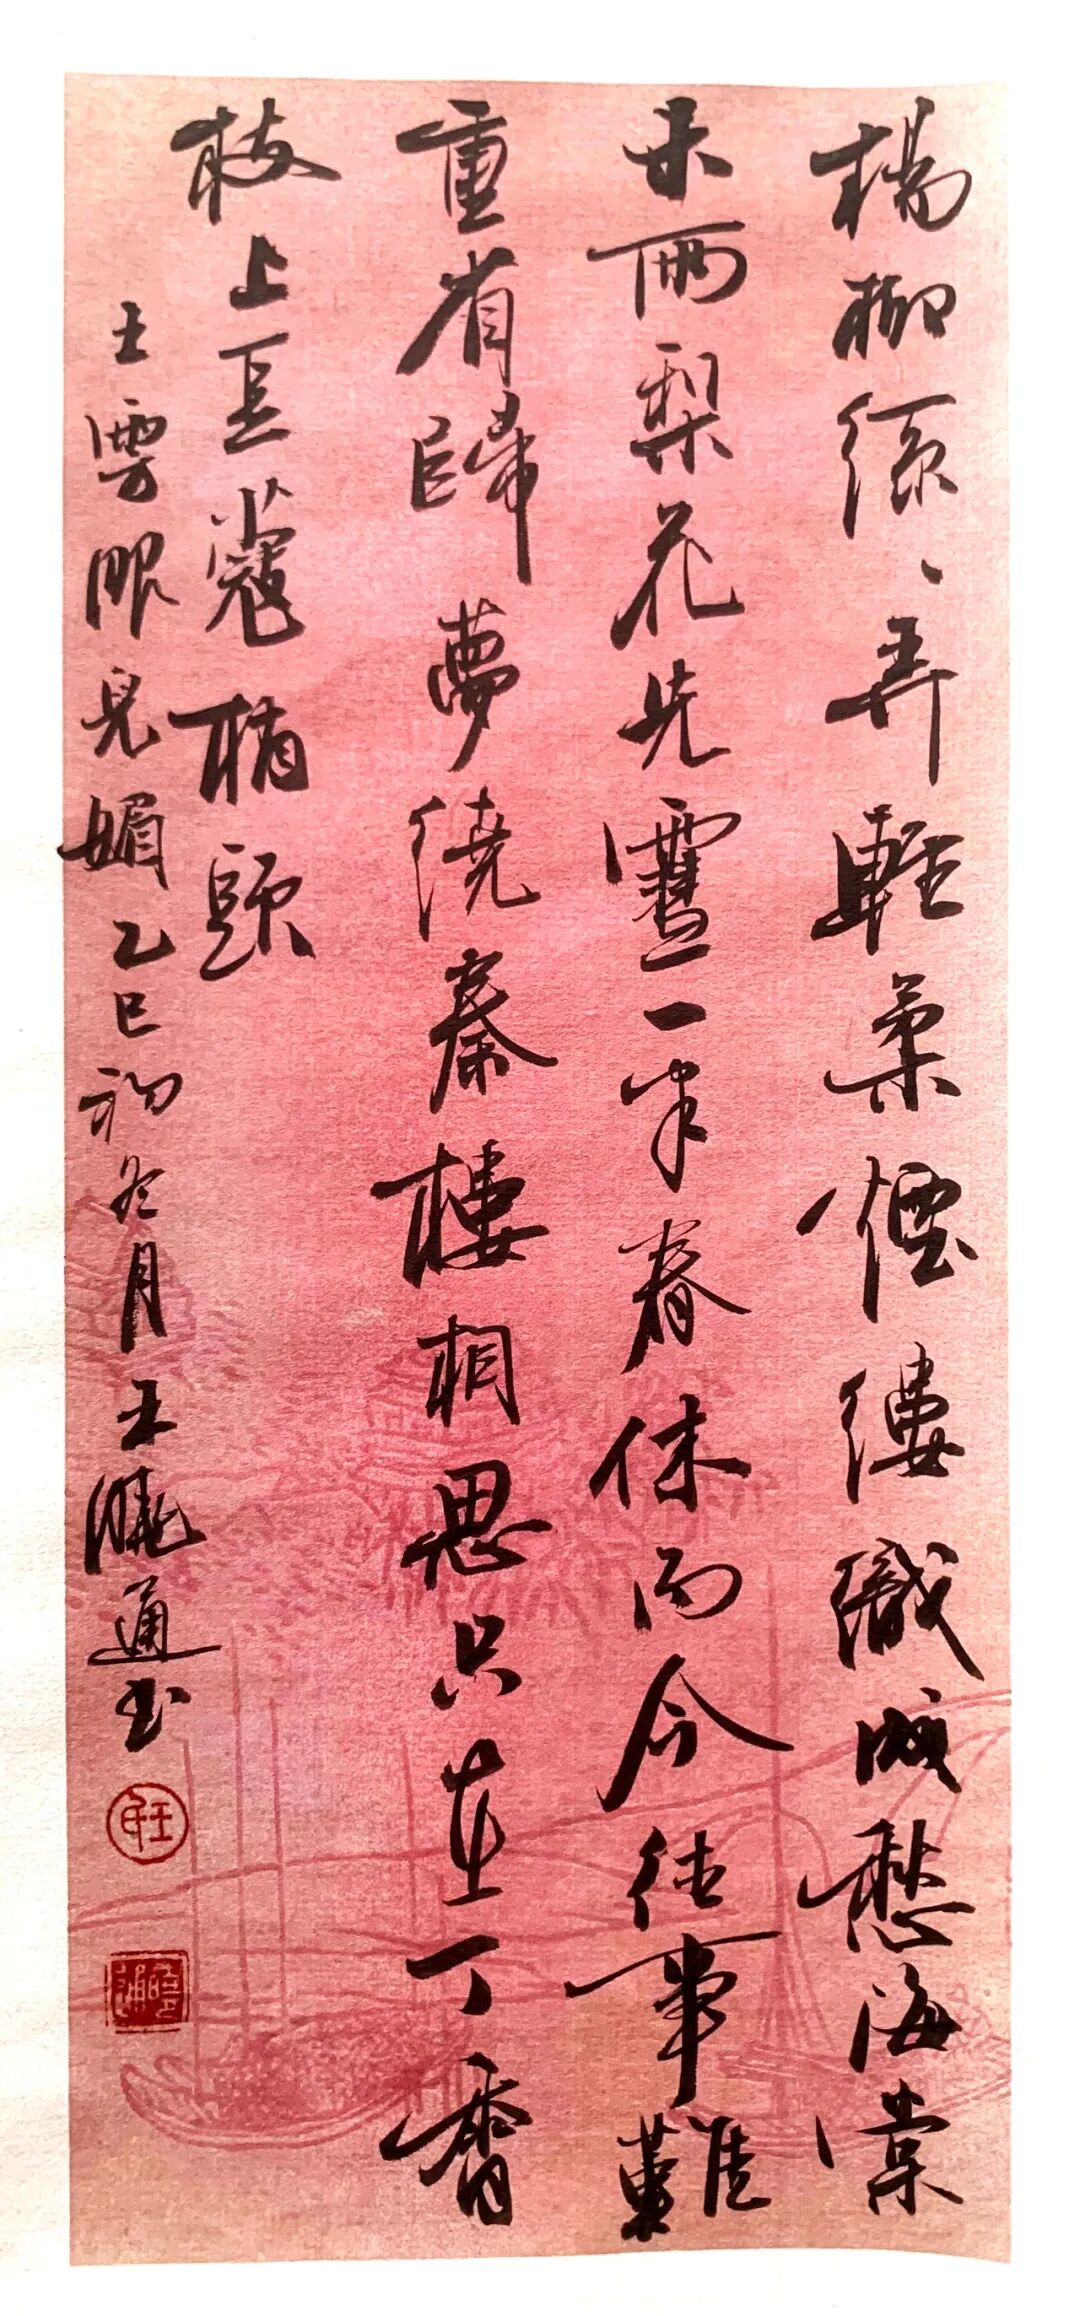 楊柳絲々弄輕柔煙縷織成愁海棠
未雨梨花先雪一半春休而今往事難
重省歸夢繞秦樓相思只在丁香
枝上豆蔻梢頭
王雱眼兒媚乙巳初冬月王曉通书